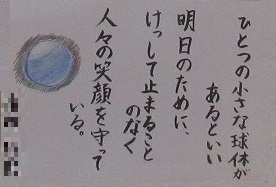 ひとつの小さな球体が
あるといい
明日のために、
けっして止まること
のなく
人々の笑顔を守って
いる。